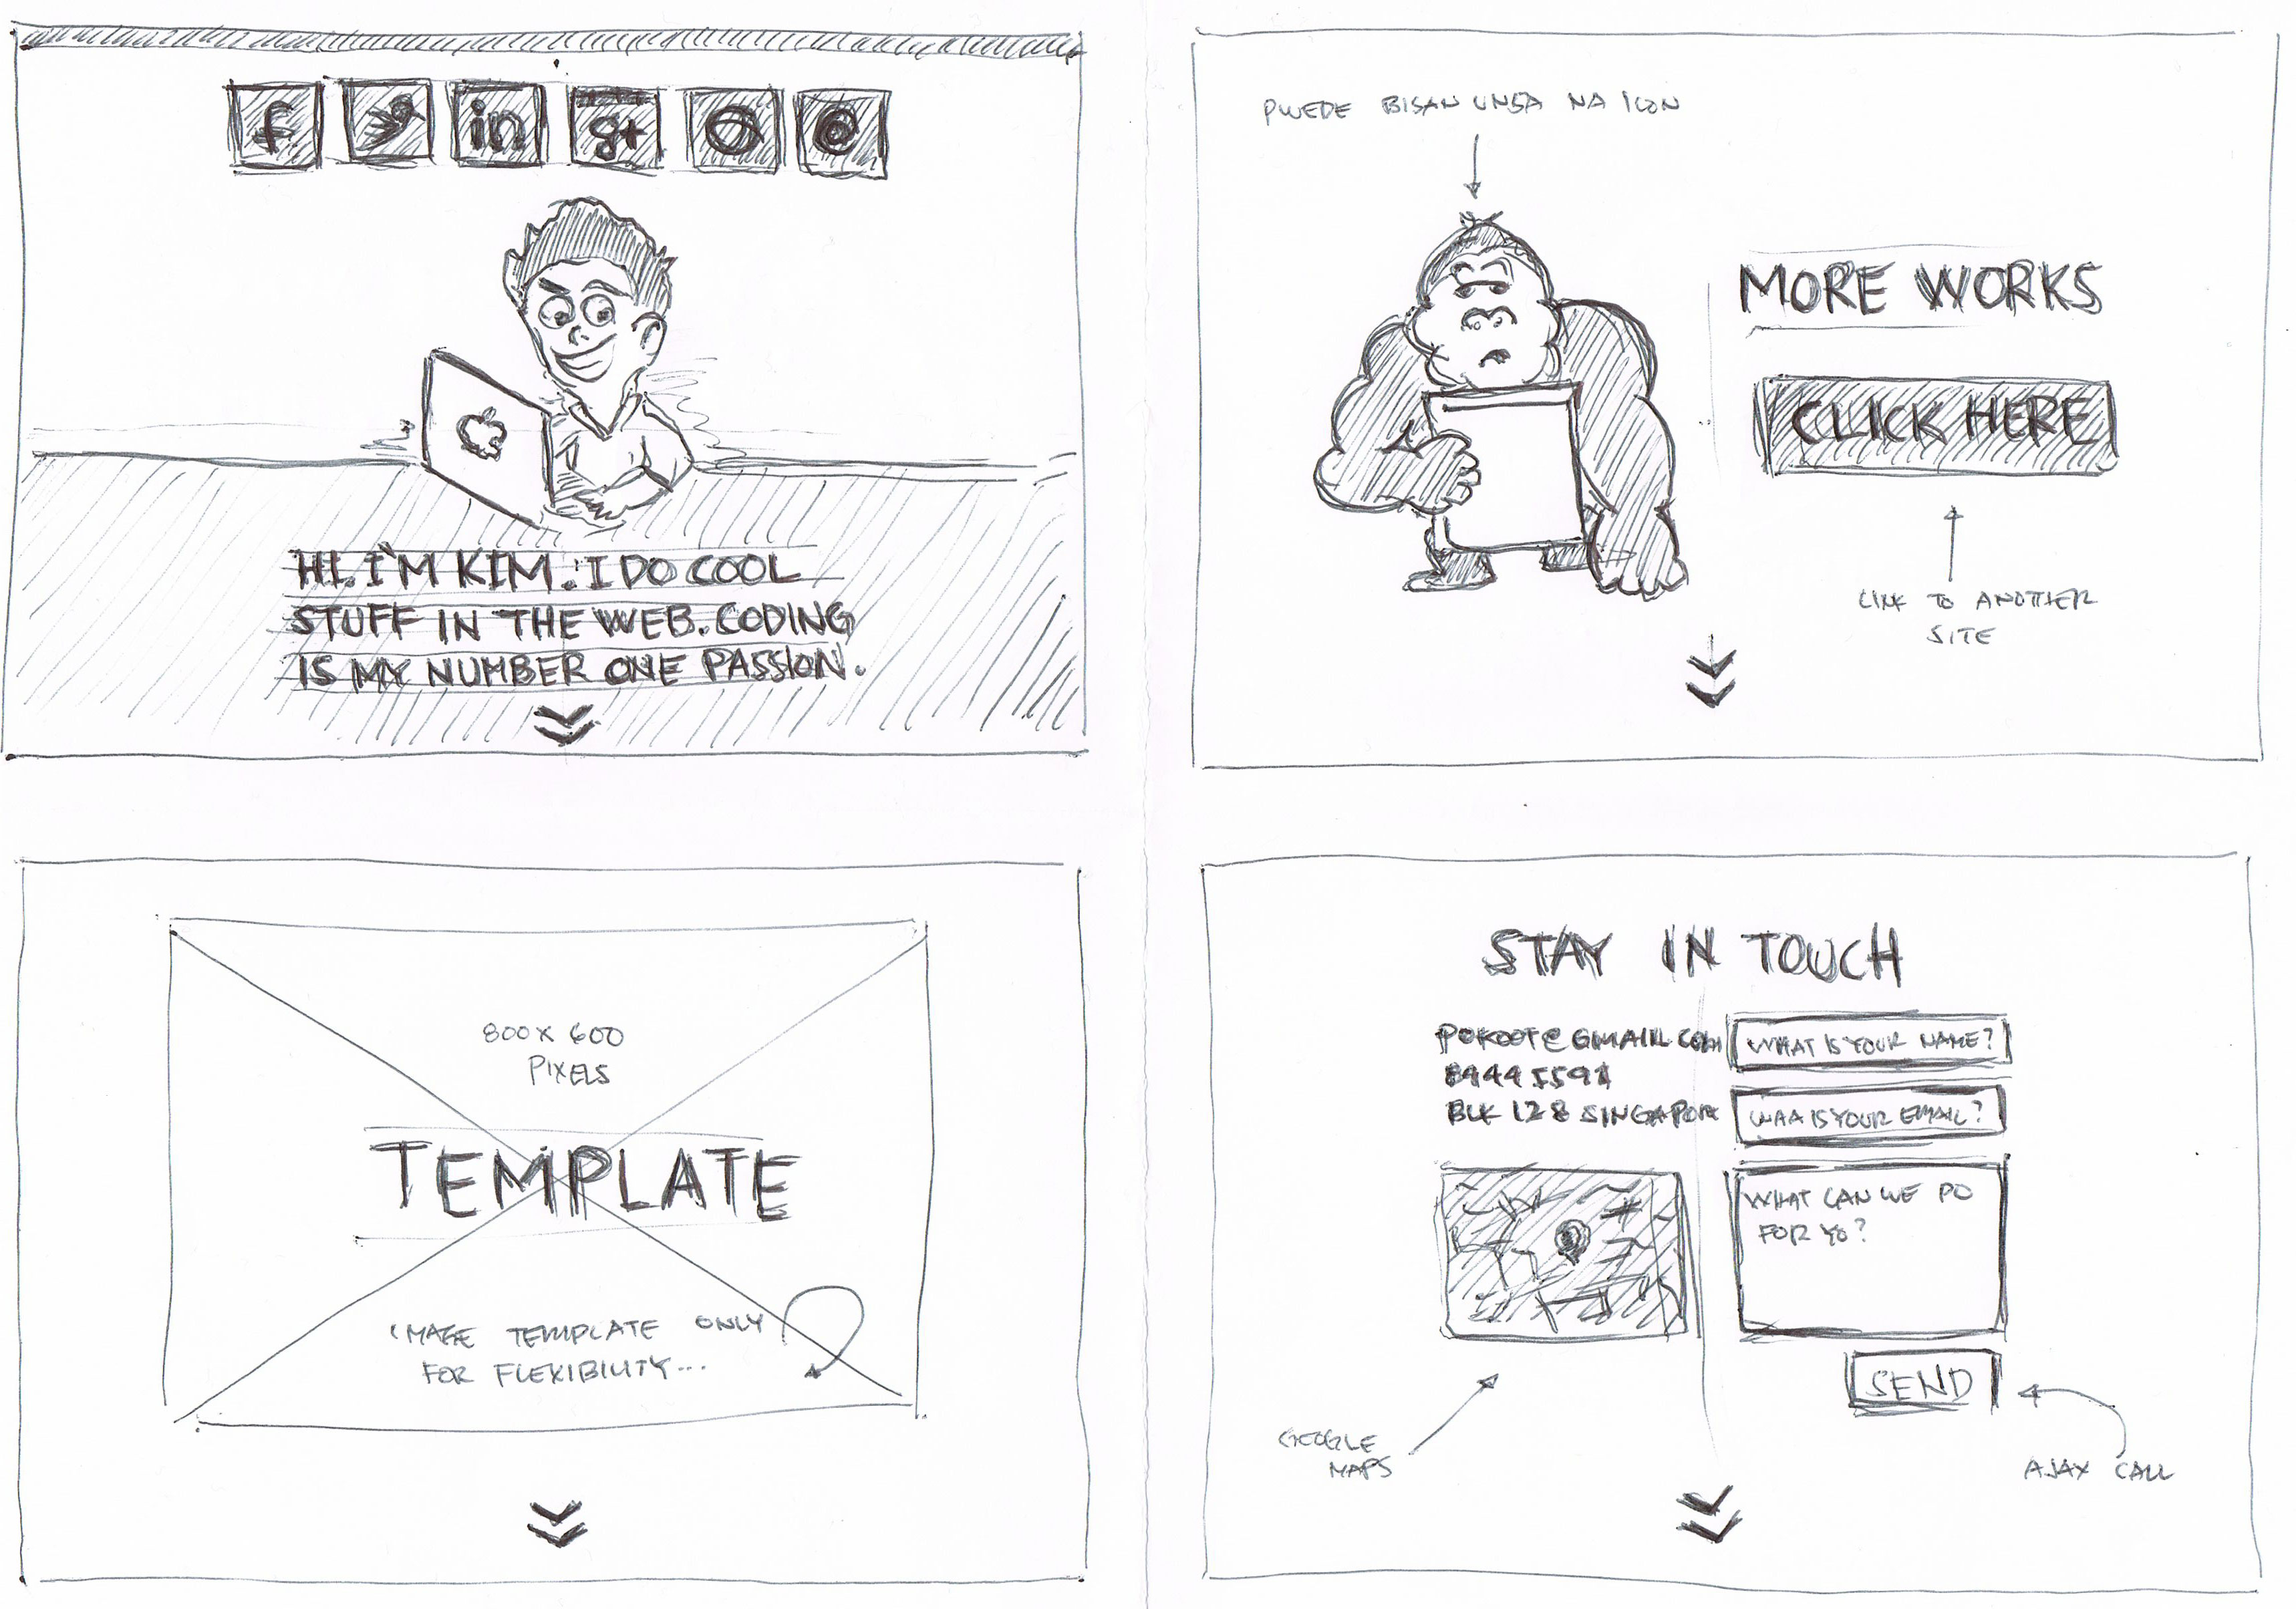 f
in
g+
@
HI. I'M KIM. I DO COOL
STUFF IN THE WEB. CODING
IS MY NUMBER ONE PASSION.
PWEDE BISAN UNSA NA ICON
MORE WORKS
CLICK HERE
LINK TO ANOTHER
SITE
800 X 600
PIXELS
TEMPLATE
IMAGE TEMPLATE ONLY
FOR FLEXIBILITY...
STAY IN TOUCH
POKOOT@GMAIL.COM
BLK 128 SINGAPORE
GOOGLE
MAPS
WHAT IS YOUR NAME?
WHA IS YOUR EMAIL?
WHAT CAN WE DO
FOR YO?
SEND
AJAX CALL